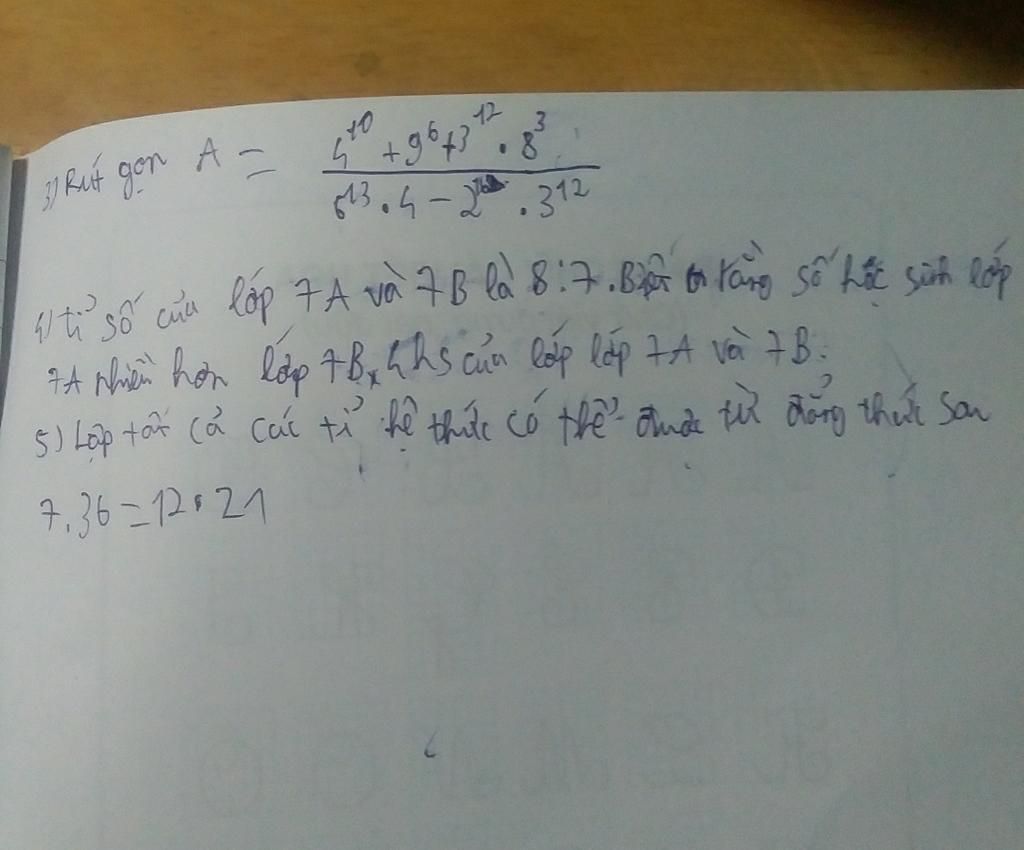 3) Rút gọn A = 4^10 + 9^6 + 3^12 . 8^3
6^13 . 4 - 2 . 3^12
4) tỉ số của lớp 7A và 7B là 8:7. Biết rằng số học sinh lớp
7A nhiều hơn lớp 7B, 4 hs của lớp lớp 7A và 7B.
5) Lập tất cả các tỉ hệ thức có thể được từ đẳng thức sau
7.36 = 12.21